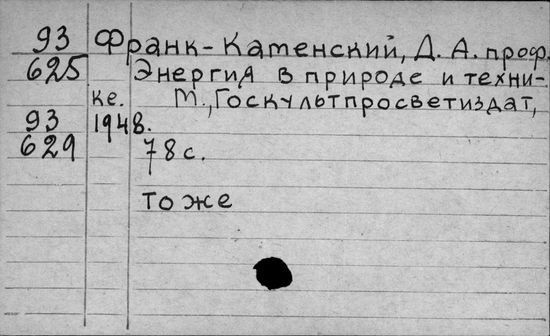 93 Франк-Каменский, Д. А. проф.
625 Энергия в природе и техни-
ке. М., Госкультпросветиздат,
93 1948.
629 78 с.
то же